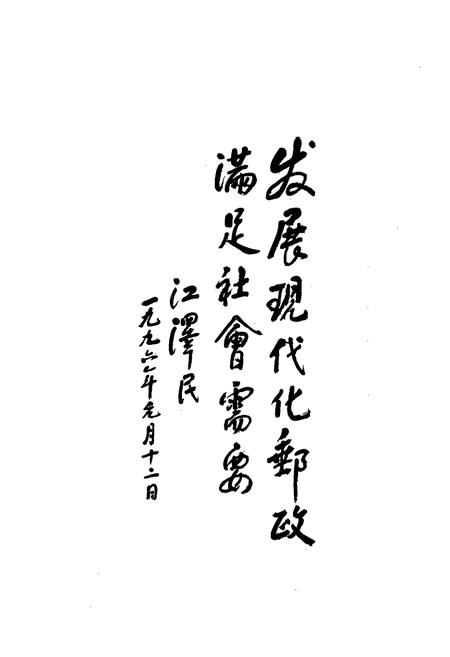 发展現代化郵政
满足社會需要
江澤民
一九九六年元月十二日